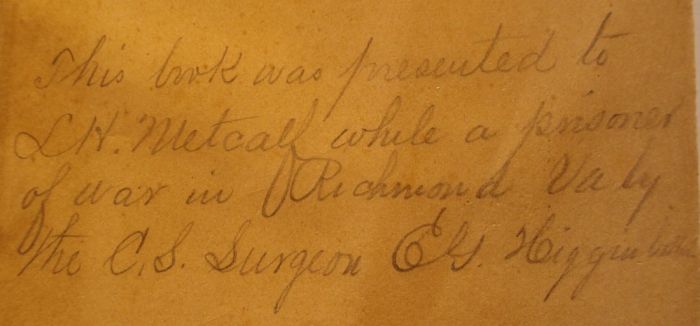 This book was presented to
L.H. Metcalf while a prisoner
of war in Richmond Va by
the C.S. Surgeon E.G.